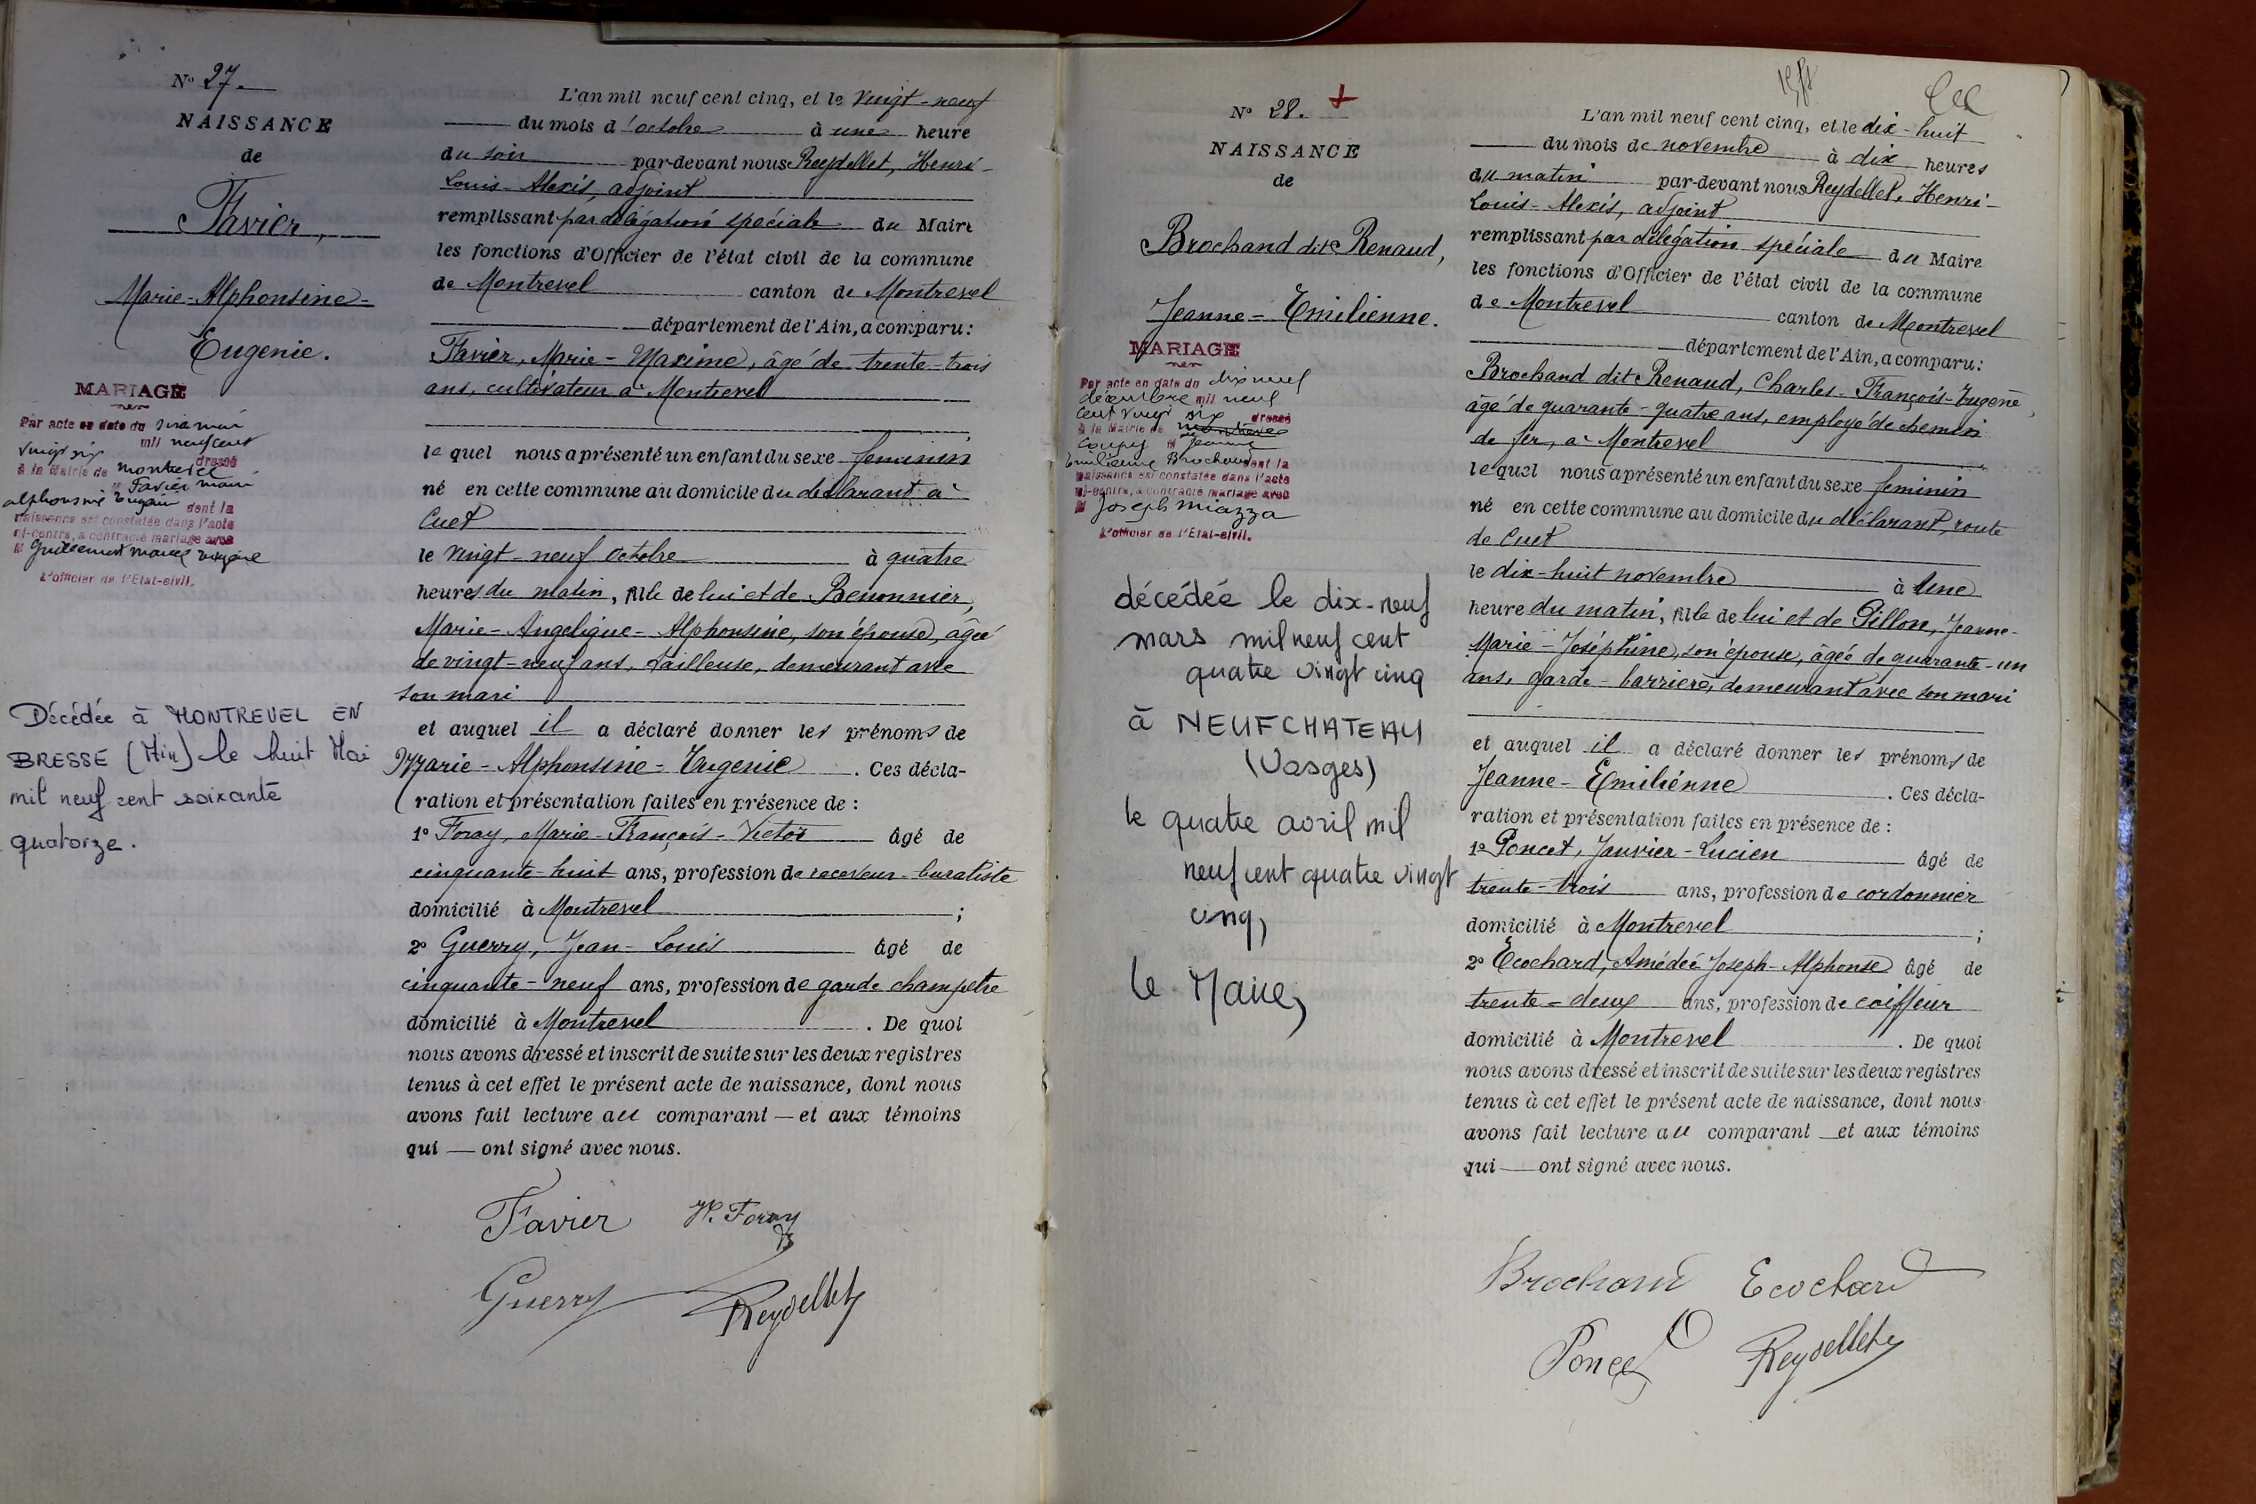 N° 27.
NAISSANCE
de
Favier,
Marie-Alphonsine-
Eugenie.
MARIAGE
Par acte en date du
mil neuf cent
vingt six dressé
à la Mairie de Montrevel
M Favier Marie
alphonsine Eugénie dont la
naissance est constatée dans l'acte
ci-contre, a contracté mariage avec
M Guillermet Marcel
L'officier de l'Etat-civil.
Décédée à MONTREVEL EN
BRESSE (Ain) le huit Mai
mil neuf cent soixante
quatorze.
L'an mil neuf cent cinq, et le vingt-neuf
du mois d'octobre à une heure
du soir par-devant nous Reydellet, Henri-
Louis-Alexis, adjoint
remplissant par délégation spéciale du Maire
les fonctions d'Officier de l'état civil de la commune
de Montrevel canton de Montrevel
département de l'Ain, a comparu:
Favier, Marie-Maxime, âgé de trente-trois
ans, cultivateur à Montrevel
lequel nous a présenté un enfant du sexe feminin
né en cette commune au domicile du déclarant à
Cuet
le vingt-neuf octobre à quatre
heures du matin, fille de lui et de Renonnier,
Marie-Angelique-Alphonsine, son épouse, âgée
de vingt-neuf ans, tailleuse, demeurant avec
son mari
et auquel il a déclaré donner les prénoms de
Marie-Alphonsine-Eugenie. Ces décla-
ration et présentation faites en présence de :
1° Foray, Marie-François-Victor âgé de
cinquante-huit ans, profession de receveur-buraliste
domicilié à Montrevel ;
2° Guerry, Jean-Louis âgé de
cinquante-neuf ans, profession de garde champetre
domicilié à Montrevel. De quoi
nous avons dressé et inscrit de suite sur les deux registres
tenus à cet effet le présent acte de naissance, dont nous
avons fait lecture au comparant — et aux témoins
qui — ont signé avec nous.
Favier V. Foray
Guerry Reydellet
N° 28. +
NAISSANCE
de
Brochand dit Renaud,
Jeanne-Emilienne.
MARIAGE
Par acte en date du dix neuf
décembre mil neuf
cent vingt six dressé
à la Mairie de Montrevel
Coupey M Jeanne
Emilienne Brochand dont la
naissance est constatée dans l'acte
ci-contre, a contracté mariage avec
M Joseph Miazza
L'officier de l'Etat-civil.
décédée le dix-neuf
mars mil neuf cent
quatre vingt cinq
à NEUFCHATEAU
(Vosges)
le quatre avril mil
neuf cent quatre vingt
cinq,
le Maire,
L'an mil neuf cent cinq, et le dix-huit
du mois de novembre à dix heures
du matin par-devant nous Reydellet, Henri-
Louis-Alexis, adjoint
remplissant par délégation spéciale du Maire
les fonctions d'Officier de l'état civil de la commune
de Montrevel canton de Montrevel
département de l'Ain, a comparu:
Brochand dit Renaud, Charles-François-Eugène,
âgé de quarante-quatre ans, employé de chemin
de fer, à Montrevel
lequel nous a présenté un enfant du sexe feminin
né en cette commune au domicile du déclarant, route
de Cuet
le dix-huit novembre à une
heure du matin, fille de lui et de Pillon, Jeanne-
Marie-Joséphine, son épouse, âgée de quarante-un
ans, garde-barrière, demeurant avec son mari
et auquel il a déclaré donner les prénoms de
Jeanne-Emilienne. Ces décla-
ration et présentation faites en présence de :
1° Poncet, Janvier-Lucien âgé de
trente-trois ans, profession de cordonnier
domicilié à Montrevel ;
2° Ecochard, Amédée-Joseph-Alphonse âgé de
trente-deux ans, profession de coiffeur
domicilié à Montrevel. De quoi
nous avons dressé et inscrit de suite sur les deux registres
tenus à cet effet le présent acte de naissance, dont nous
avons fait lecture au comparant — et aux témoins
qui — ont signé avec nous.
Brochand Ecochard
Poncet Reydellet